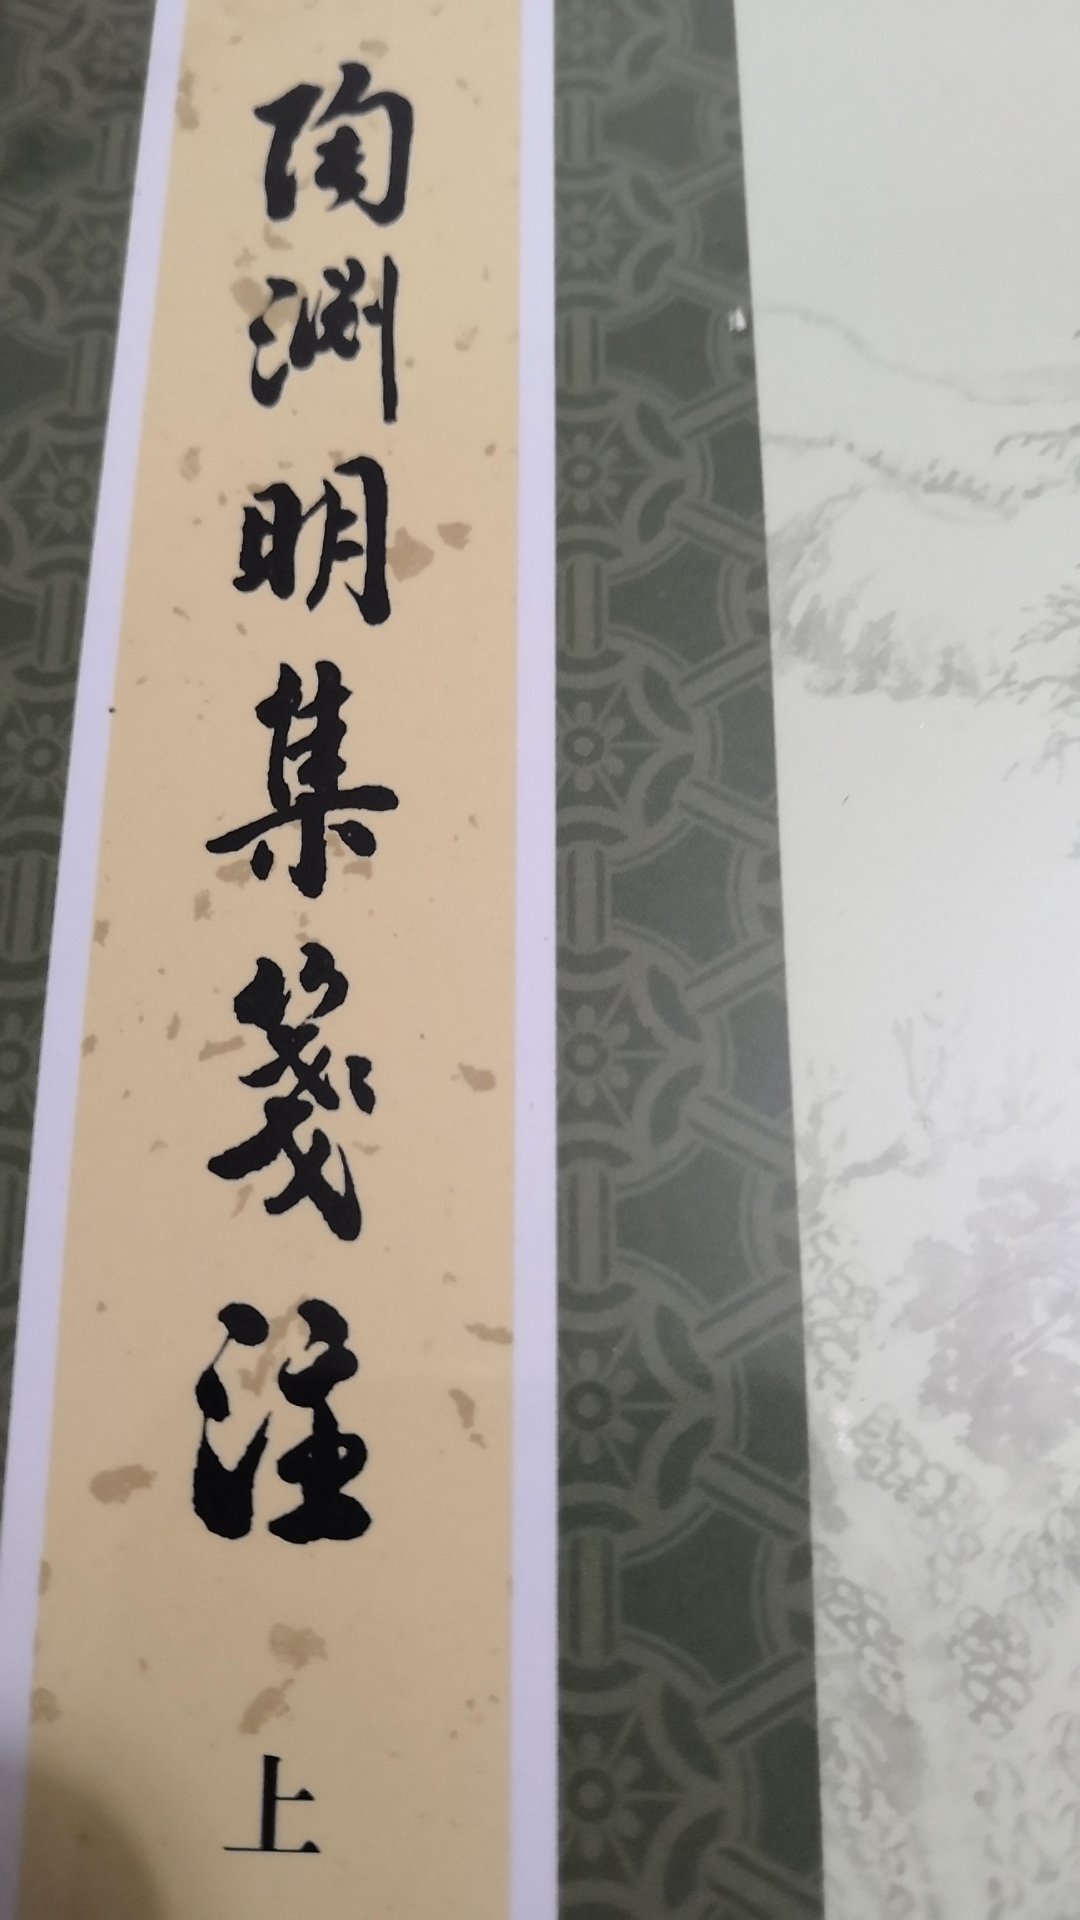 陶渊明集箋注
上